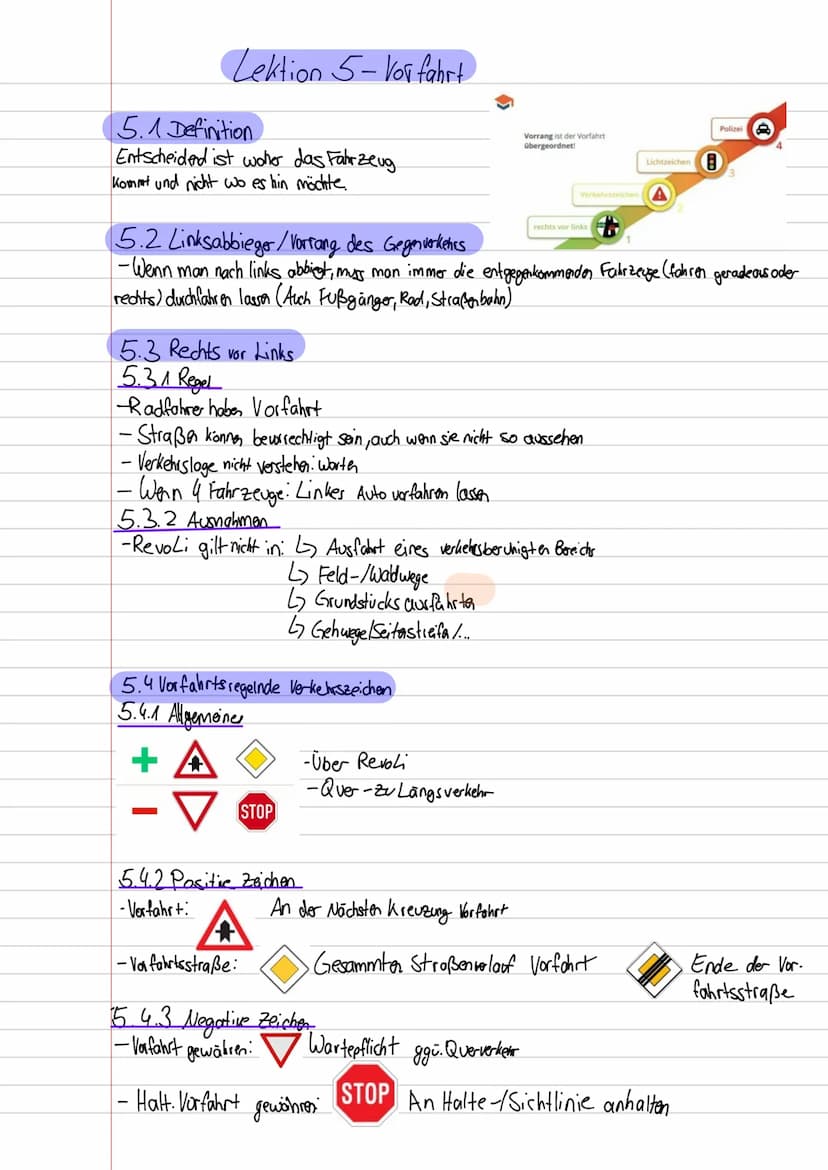 Lektion 5 - Vorfahrt
Vorrang ist der Vorfahrt
übergeordnet!
Polizei
4
Lichtzeichen
3
Verkehrszeichen
2
rechts vor links
1
5.1 Definition
Entscheidend ist woher das Fahrzeug
kommt und nicht wo es hin möchte.
5.2 Linksabbieger/Vorrang des Gegenverkehrs
- Wenn man nach links abbiegt, muss man immer die entgegenkommenden Fahrzeuge (fahren geradeaus oder
rechts) durchfahren lassen (Auch Fußgänger, Rad, Straßenbahn)
5.3 Rechts vor Links
5.3.1 Regel
- Radfahrer haben Vorfahrt
- Straßen können bevorrechtigt sein, auch wenn sie nicht so aussehen
- Verkehrslage nicht verstehen: warten
- Wenn 4 Fahrzeuge: Linkes Auto vorfahren lassen
5.3.2 Ausnahmen
- RevoLi gilt nicht in: ↳ Ausfahrt eines verkehrsberuhigten Bereichs
↳ Feld-/Waldwege
↳ Grundstücksausfahrten
↳ Gehwege/Seitenstreifen/...
5.4 Vorfahrtsregelnde Verkehrszeichen
5.4.1 Allgemeines
+
- Über Revoli
- Quer - zu Längsverkehr
-
STOP
5.4.2 Positive Zeichen
- Vorfahrt: An der Nächsten Kreuzung Vorfahrt
- Vorfahrtsstraße: Gesammten Straßenverlauf Vorfahrt Ende der Vor-
fahrtsstraße
5.4.3 Negative Zeichen
- Vorfahrt gewähren: Wartepflicht ggü. Querverkehr
- Halt. Vorfahrt gewähren: STOP An Halte-/Sichtlinie anhalten